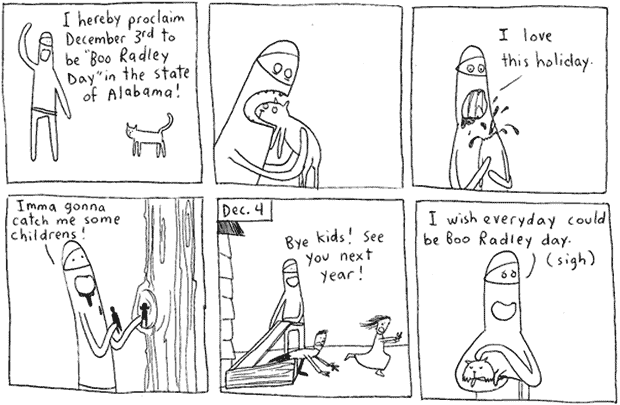 I hereby proclaim
December 3rd to
be "Boo Radley
Day" in the state
of Alabama!
I love
this holiday.
Imma gonna
catch me some
childrens!
Dec. 4
Bye kids! See
you next
year!
I wish everyday could
be Boo Radley day.
(sigh)